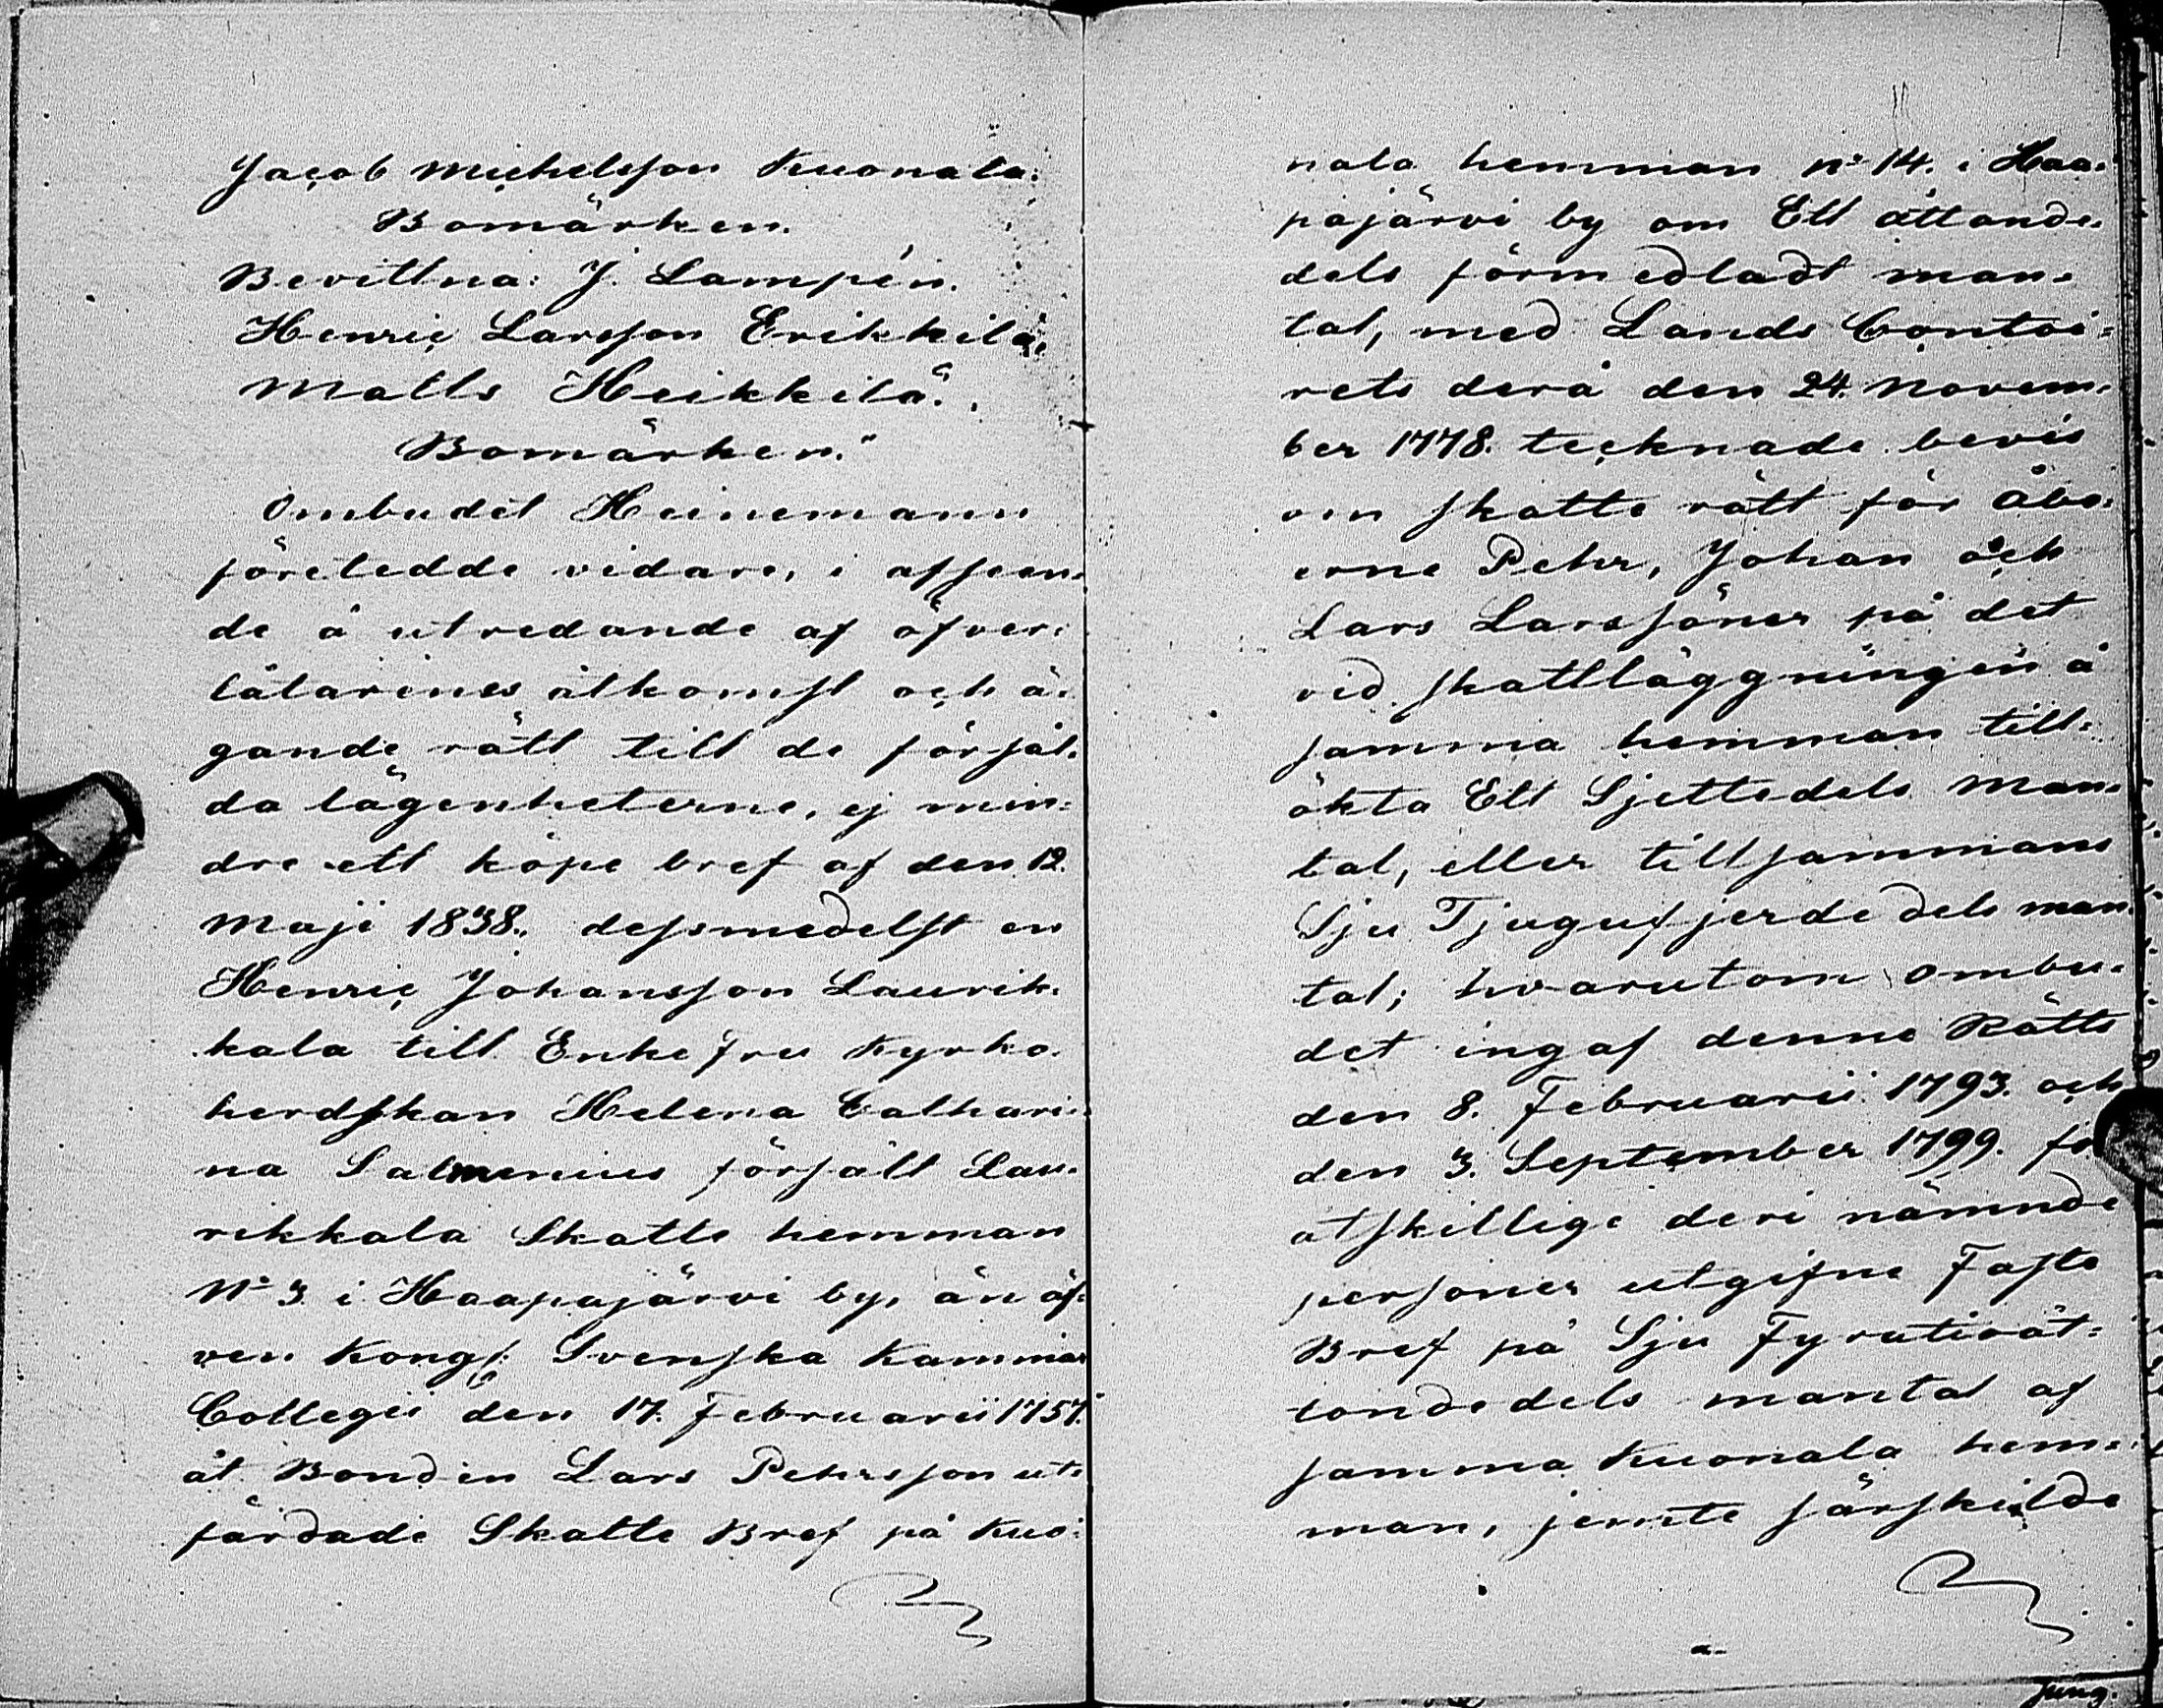 Jacob Michelsson Kuonala.
Bomärken.
Bevittna: J. Lampén.
Henric Larsson Erikkilä,
Matts Heikkilä.
Bomärken."
Ombudet Heinemann
företedde vidare, i afseen=
de å utredande af öfver=
låtarenes åtkomst och ä=
gande rätt till de försål=
da lägenheterne, ej min=
dre ett köpe bref af den 12.
Maji 1838., dessmedelst en
Henric Johansson Laurik=
kala till Enkefru Kyrko=
herdskan Helena Cathari=
na Salmenius försålt Lau=
rikkala Skatte hemman
No 3 i Haapajärvi by, än äf=
ven Kongl: Svenska Kammar
Collegii den 17. Februarii 1757.
åt Bonden Lars Pehrsson ut=
färdade Skatte Bref på Kuo=
nala hemman no 14. i Haa=
pajärvi by om Ett åttonde=
dels förmedladt man=
tal, med Lands Contoi=
rets derå den 24. Novem=
ber 1778. tecknade bevis
om skatte rätt för Åbo=
erne Pehr, Johan och
Lars Larssöner på det
vid skattläggningen å
samma hemman till=
ökta Ett Sjettedels man=
tal, eller tillsammans
Sju Tjugufjerdedels man=
tal; hvarutom ombu=
det ingaf denne Rätts
den 8. Februarii 1793. och
den 3. September 1799. för
åtskillige deri nämnde
personer utgifne Faste
Bref på Sju Fyratioåt=
tondedels mantal af
samma Kuonala hem=
man, jemte särskilde